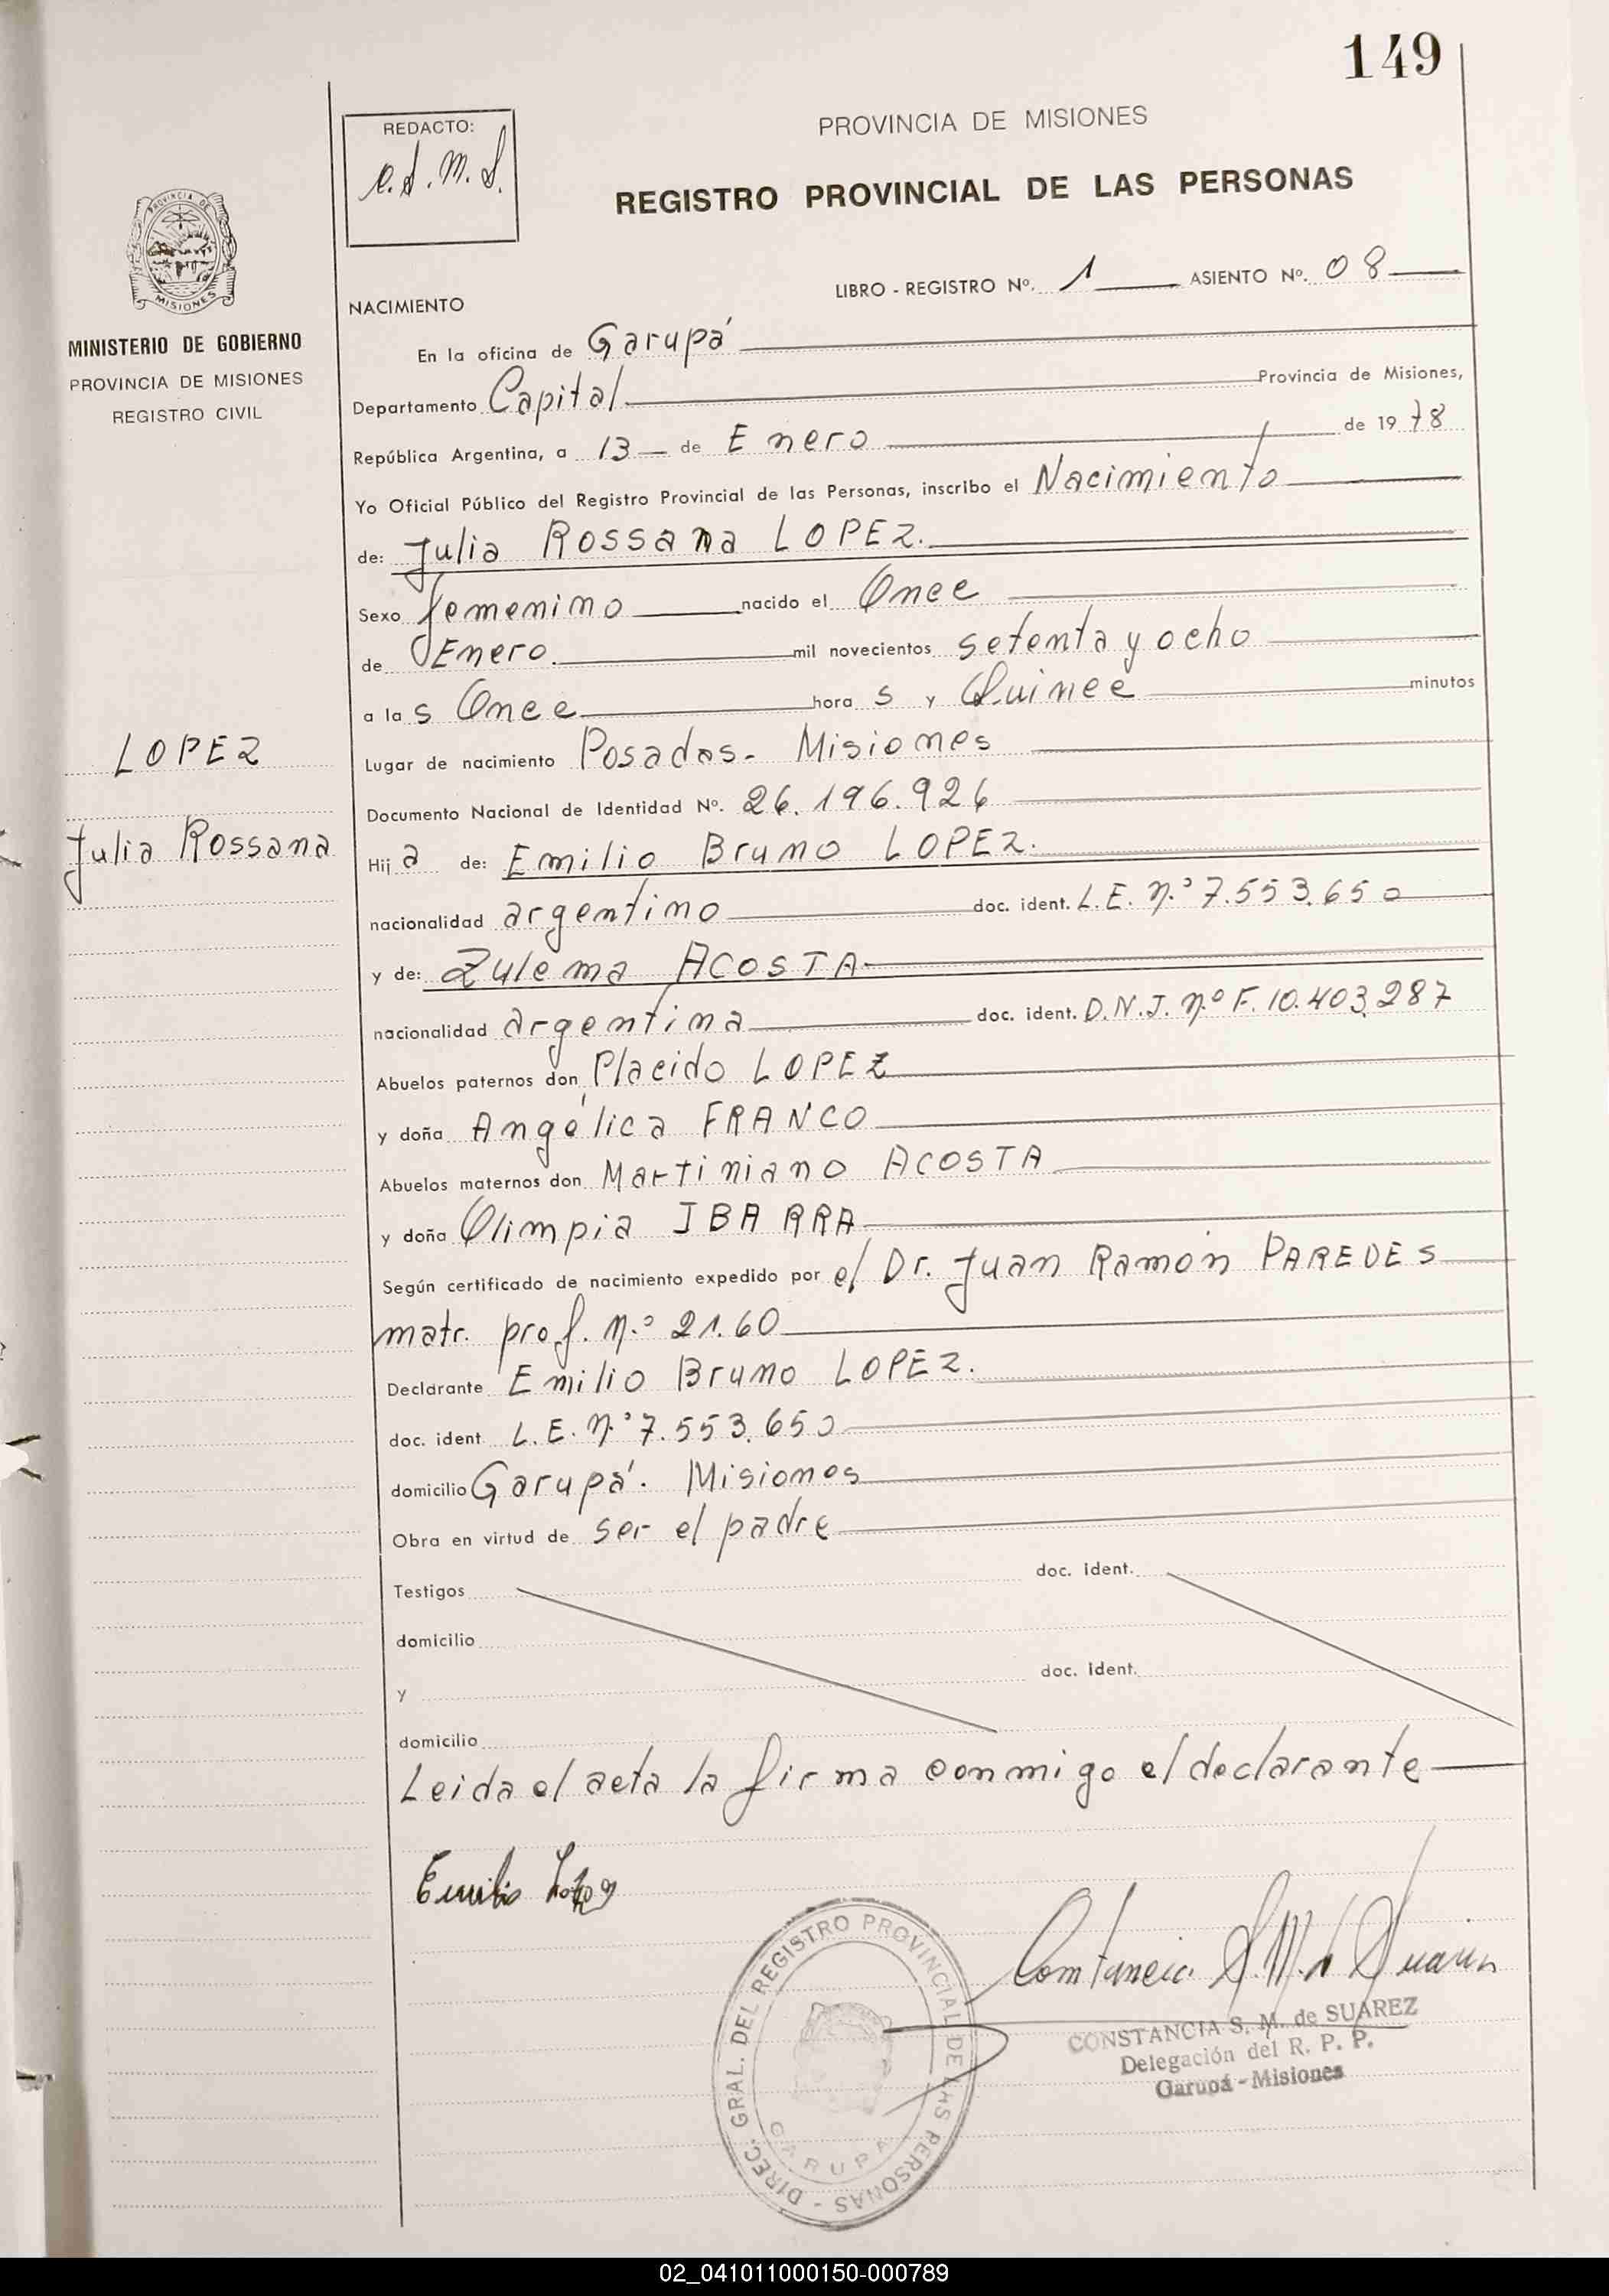 149
REDACTO:
PROVINCIA DE MISIONES
REGISTRO PROVINCIAL DE LAS PERSONAS
PROVINCIA DE MISIONES
MINISTERIO DE GOBIERNO
PROVINCIA DE MISIONES
REGISTRO CIVIL
LIBRO - REGISTRO Nº. 1 ASIENTO Nº. 08
NACIMIENTO
En la oficina de Garupá
Departamento Capital Provincia de Misiones,
República Argentina, a 13 de Enero de 1978
Yo Oficial Público del Registro Provincial de las Personas, inscribo el Nacimiento
de: Julia Rossana LOPEZ.
Sexo femenino nacido el Once
de Enero. mil novecientos setenta y ocho
a las Once horas y Quince minutos
Lugar de nacimiento Posadas - Misiones
Documento Nacional de Identidad Nº. 26.196.926
LOPEZ
Julia Rossana
Hija de: Emilio Bruno LOPEZ.
nacionalidad argentino doc. ident. L.E. n.º 7.553.650
y de: Zulema ACOSTA
nacionalidad argentina doc. ident. D.N.I. nº F. 10.403.287
Abuelos paternos don Placido LOPEZ
y doña Angélica FRANCO
Abuelos maternos don Martiniano ACOSTA
y doña Olimpia IBARRA
Según certificado de nacimiento expedido por el Dr. Juan Ramón PAREDES
matr. prof. n.º 21.60
Declarante Emilio Bruno LOPEZ.
doc. ident. L.E. n.º 7.553.650
domicilio Garupá. Misiones
Obra en virtud de ser el padre
Testigos doc. ident.
domicilio
y doc. ident.
domicilio
Leida el acta la firma conmigo el declarante
Emilio Lopez
DIREC. GRAL. DEL REGISTRO PROVINCIAL DE LAS PERSONAS -
GARUPA
CONSTANCIA S. M. de SUAREZ
Delegación del R. P. P.
Garupá - Misiones
02_041011000150-000789